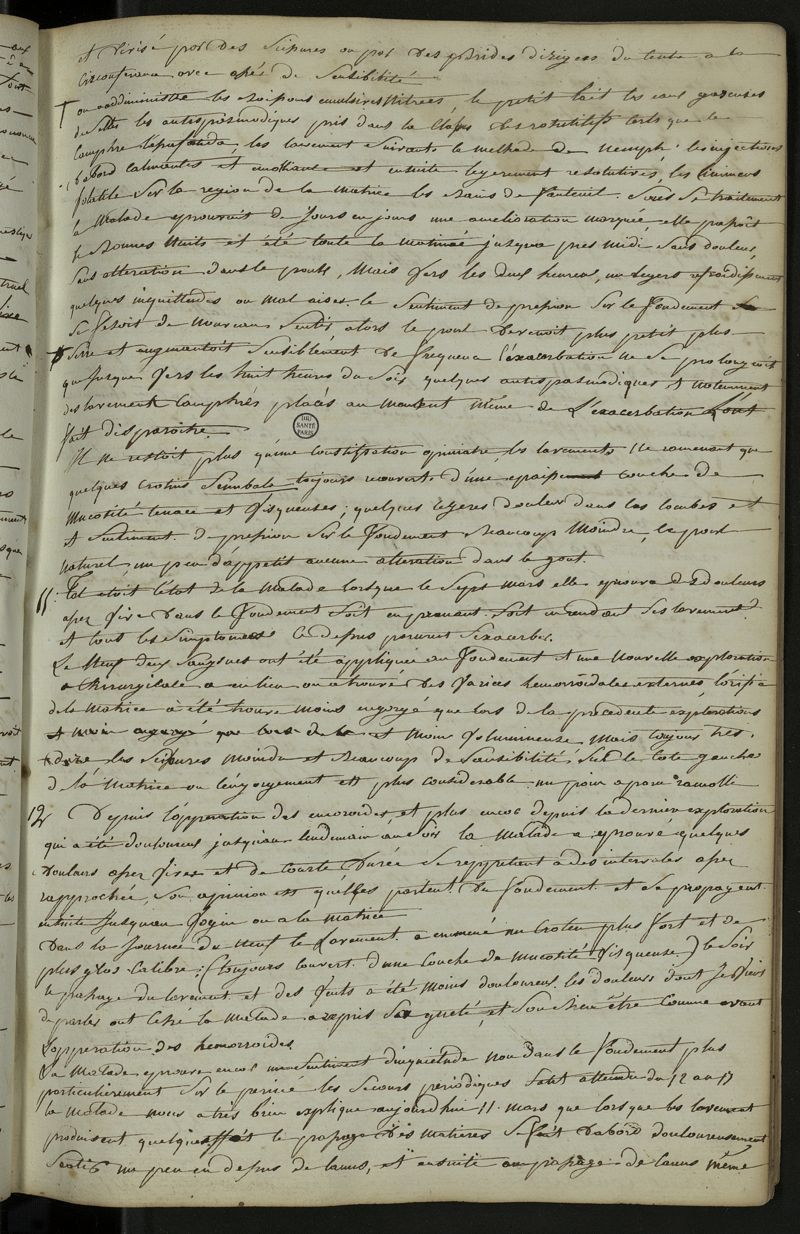 et divisé par des scissures ou par des brides dirigées du centre a la
circonference avec assés de sensibilité
on administre les boissons emulsives nitrees, le petit lait les eaux gazeuses
de les antispasmodiques pris dans la classe des tels que le
camphre l'assa foetida, les lavement suivant la methode de nemph: les injections
d'abord calmantes et emolliante et ensuite legerement resolutives, les liniment
volatile sur la region de la matrice les bains de fauteuil. Sous ce traitement
la Malade eprouvoit de jours en jours une amelioration marquée, elle passoit
de bonnes nuits et été toute la matinée jusqua pres midi sans douleur,
sans alteration dans le pouls, mais vers les deux heures, un legers refroidissement
quelques inquiettudes ou mal aises le sentiment de pression sur le fondement
se fesoit de nouveau sentir alors le pouls devenoit plus petit plus
serré et augmentoit sensiblement de frequence l'exacerbation ne se prolongeoit
que jusque vers les huit heures du soir quelques antispasmodiques et notamment
des lavement camphrés placés au moment même de l'exacerbation l'ont
fait disparoitre.
BIU
SANTÉ
PARIS
Il ne restoit plus qu'une constipation opiniatre, les lavements ne ramenant que
quelques crotins toujours recouverts d'une epaisse couche de
mucosité tenace et visqueuses; quelques legeres douleur dans les lombes et
et sentiment de pression sur le fondement beaucoup moindre, le pouls
naturel un peu d'appetit aucune alteration dans le gout.
11. Tel etoit l'état de la Malade lorsque le Sept mars elle eprouva des douleurs
assez vive dans le fondement soit en prenant soit en rendant ses lavement
et tout les simptomes ci dessus parurent s'exacerber.
Le neuf deux sangsues ont été appliquée au fondement et une nouvelle exploration
chirurgicale a eu lieu on a trouvé des varices hemorroidales externes, l'orifice
de la matrice à été trouvé moins engorgé que lors de la precedente explorations
et moin engorgé que lors de la et moin volumineuse, mais toujours tres
dure les scissures moindre et beaucoup de sensibilité, sur le coté gauche
de la matrice ou l'engorgement est plus considerable un point a paru ramolli
12 Depuis l'apperition des emoroides, et plus encor depuis la dernier exploration
qui a été douloureux jusquau lendemain au soir la Malade a eprouvé quelques
douleurs assez vives et de courte durée se reppettent a des intervales assez
rapprochée, son opinion est qu'elles partent du fondement et se propagent
ensuite jusquau vagin ou a la matrice
Dans la journée du neuf le Lavement a emmené un crotin plus fort et de
plus gros calibre; (toujours couvert d'une couche de mucosité visqueuse) le soir
le passage du lavement et des vents a été moins douloureux les douleurs dont je viens
de parler ont cessé la malade a repris sa gaieté, et son bien être comme avant
l'apperation des hemorroides
La Malade eprouve encor un sentiment d'inquietude non dans le fondement plus
particulierement sur le periné les secours periodiques sont attendu du 12 au 17
la malade nous a tres bien expliqué aujourdhui 11 mars que lorsque les lavement
produisent quelque effet le passage des matieres se fait d'abord douloureusement
sentir un peu en dessus de lanus, et ensuite au passage de lanus même